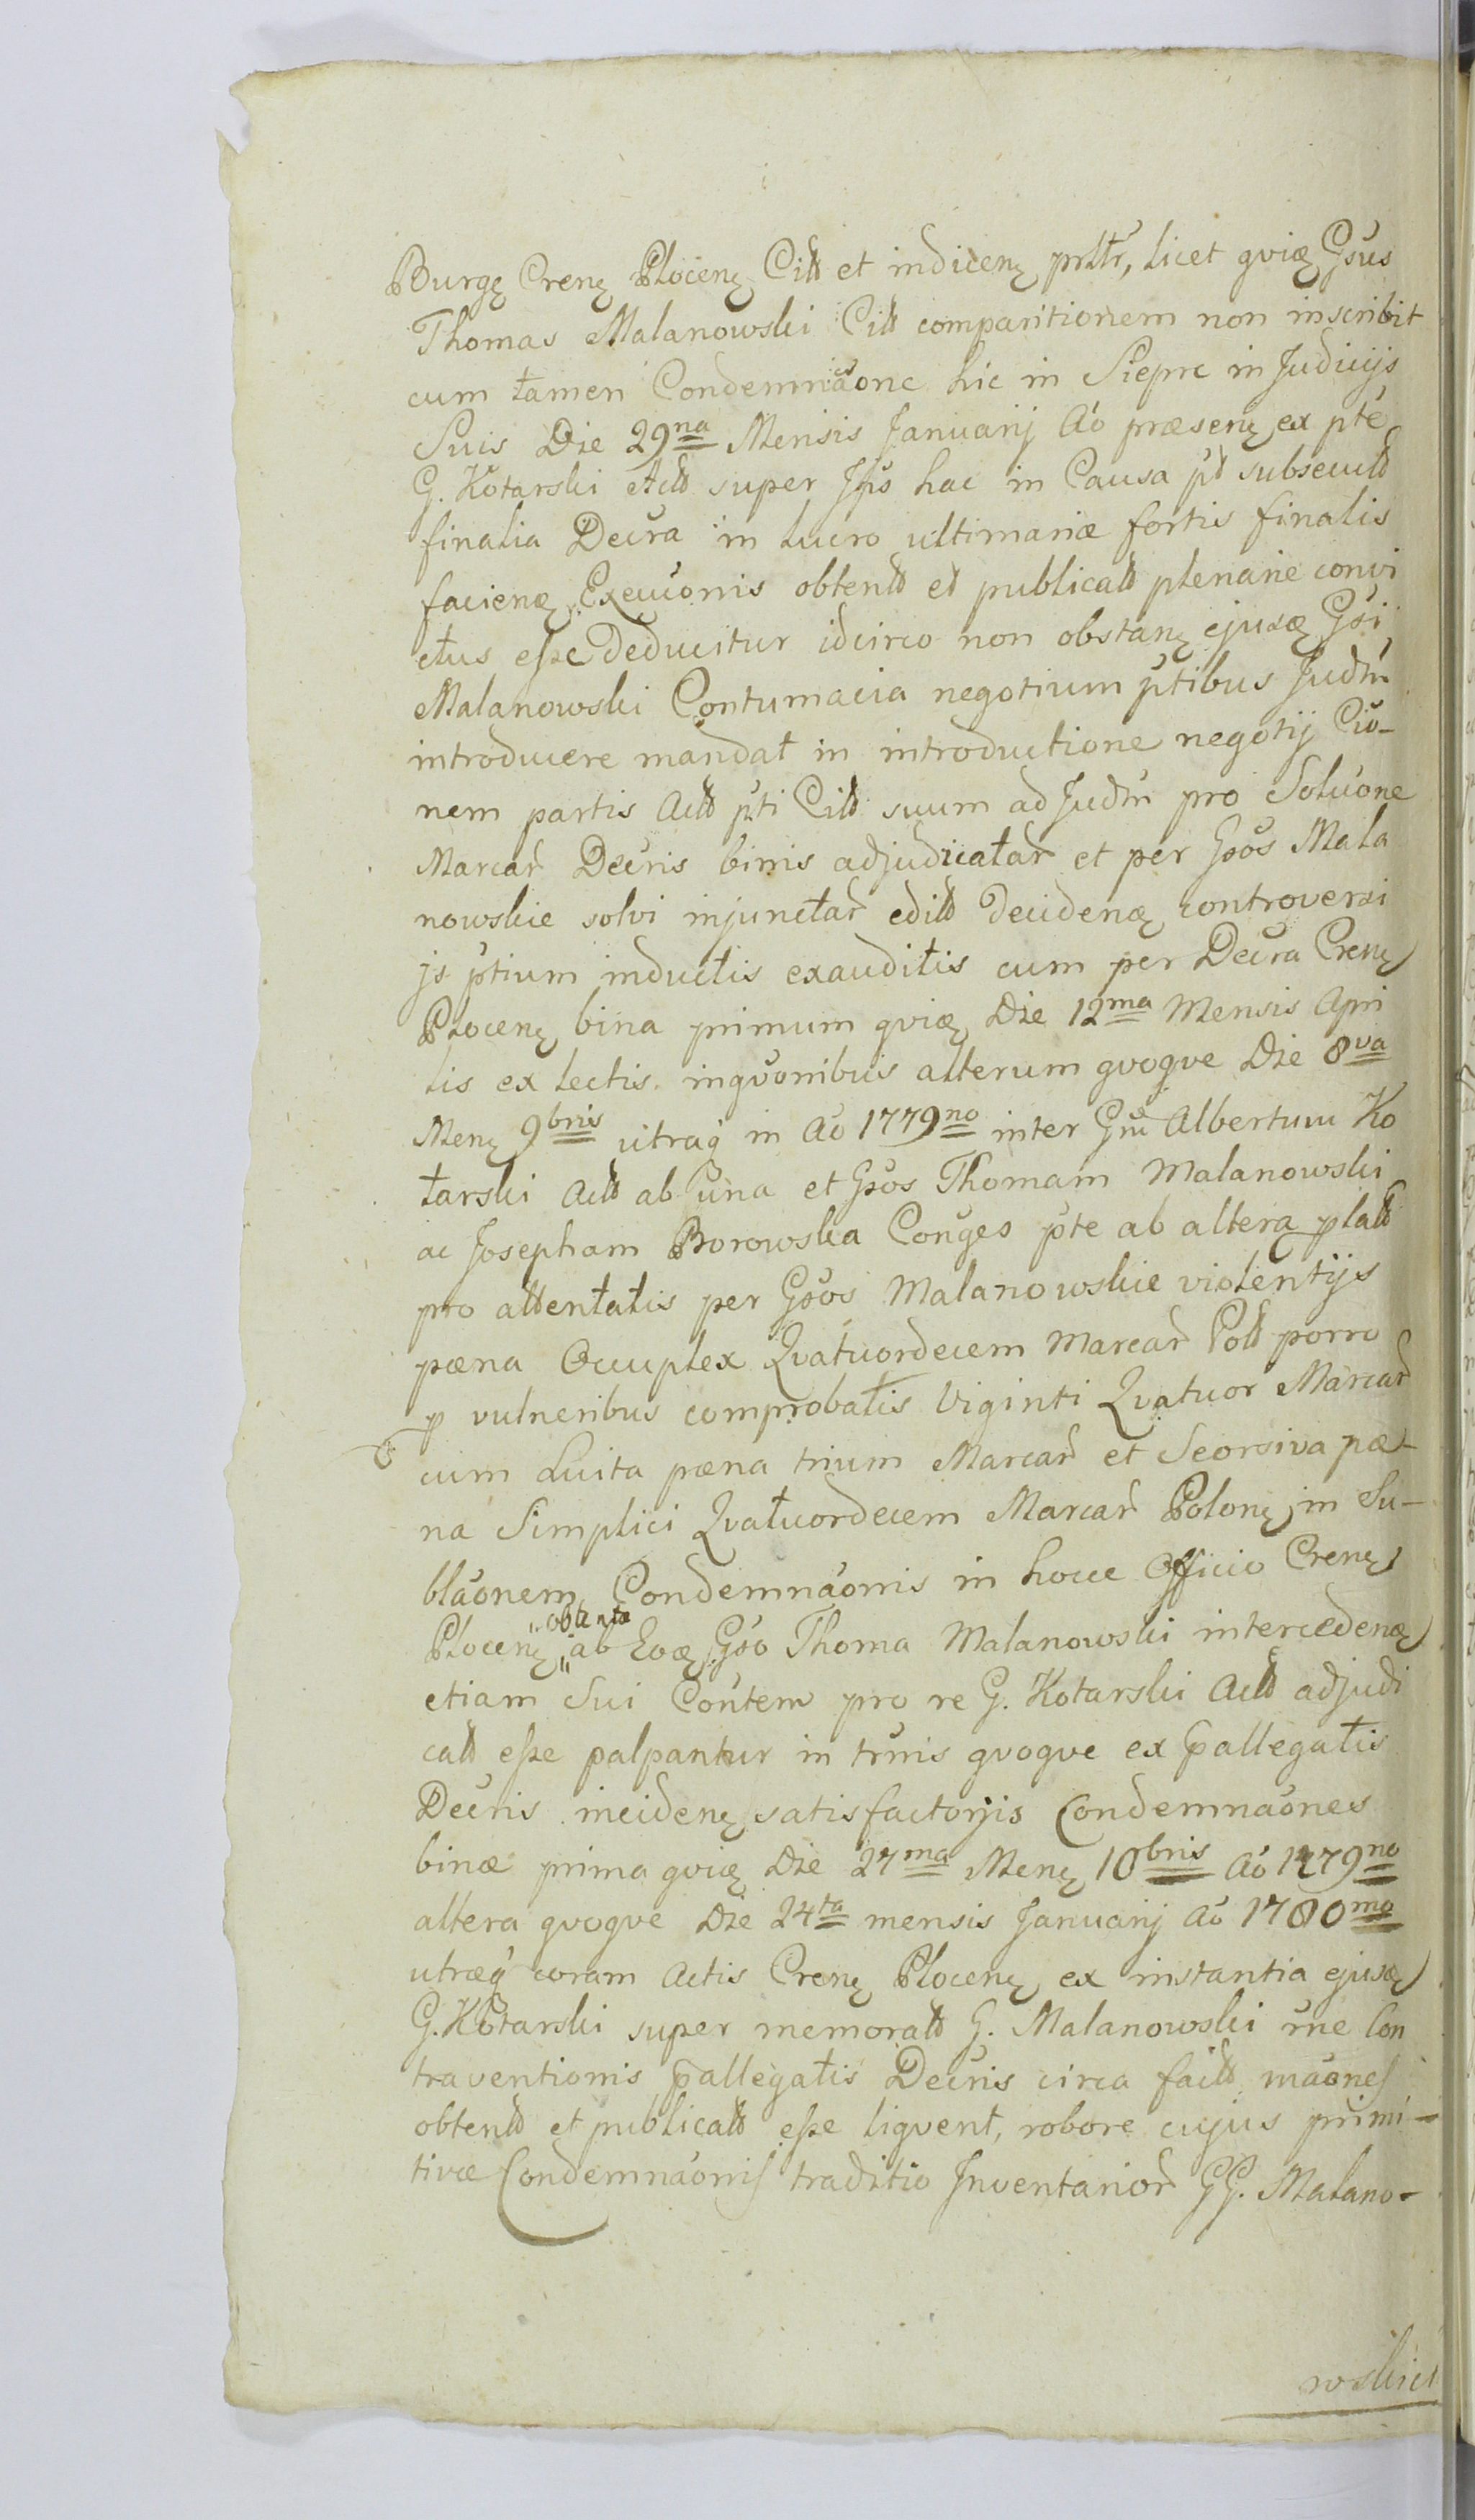 Burgę Crenę Plocenę Citt et indicenę prltr, licet qvię Gsus
Thomas Malanowski Citt comparitionem non inscribit
cum tamen Condemnãone hic in Sieprc in Judicijs
Suis Die 29na Mensis Januarij Aõ præsenę ex pte
G. Kotarski Actt super Jps hac in Causa pt subsecutt
finalia Decra in lucro ultimariæ fortis finalis
facienę Execuõnis obtentt et publicatt plenarie convi
ctus eſse deducitur idcirco non obstanę ejusę Gsi
Malanowski Contumacia negotium ptibus Judm
introducere mandat in introductione negotij Cio-
nem partis Actt pti Citt suum ad Judm pro Soluõne
Marcar Decris binis adjudicatar et per Gsos Mala
nowskie solvi injunctar editt decidenę controversi
js ptium inductis exauditis cum per Decra Crenę
Plocenę bina primum qvię Die 12ma Mensis Apri
lis ex lectis inqvonibus alterum qvoqve Die 8va
Menę 9bris utraq in Aõ 1779no inter Gm Albertum Ko
tarski Actt ab una et Gsos Thomam Malanowski
ac Josepham Borowska Conges pte ab altera platt
pro attentatis per Gsos Malanowskie violentijs
pœna Occuplex Qvatuordecem Marcar Poll porro
p vulneribus comprobatis Viginti Qvatuor Marcar
cum Luita pœna trium Marcar et Seorsiva pœ-
na Simplici Qvatuordecem Marcar Polonę in Su-
blaõnem Condemnaõnis in hocce Officio Crenę
Plocenę „obtenta ab Eoę Gso Thoma Malanowski intercedenę
etiam Sui Contem pro re G. Kotarski Actt adjudi
catt eſse palpantur in trnis qvoqve ex pallegatis
Decris incidenę satisfactorijs Condemnaõnes
binæ prima qvię Die 27ma Menę 10bris Aõ 1779no
altera qvoqve Die 24ta mensis Januarij Aõ 1780mo
utræq coram Actis Crenę Plocenę ex instantia ejusę
G. Kotarski super memoratt G. Malanowski rne Con
traventionis pallegatis Decris circa factt maõnes
obtentt et publicatt eſse liqvent, robore cujus primi-
tivæ Condemnaõnis traditio Inventarior GG. Malano-
wskich